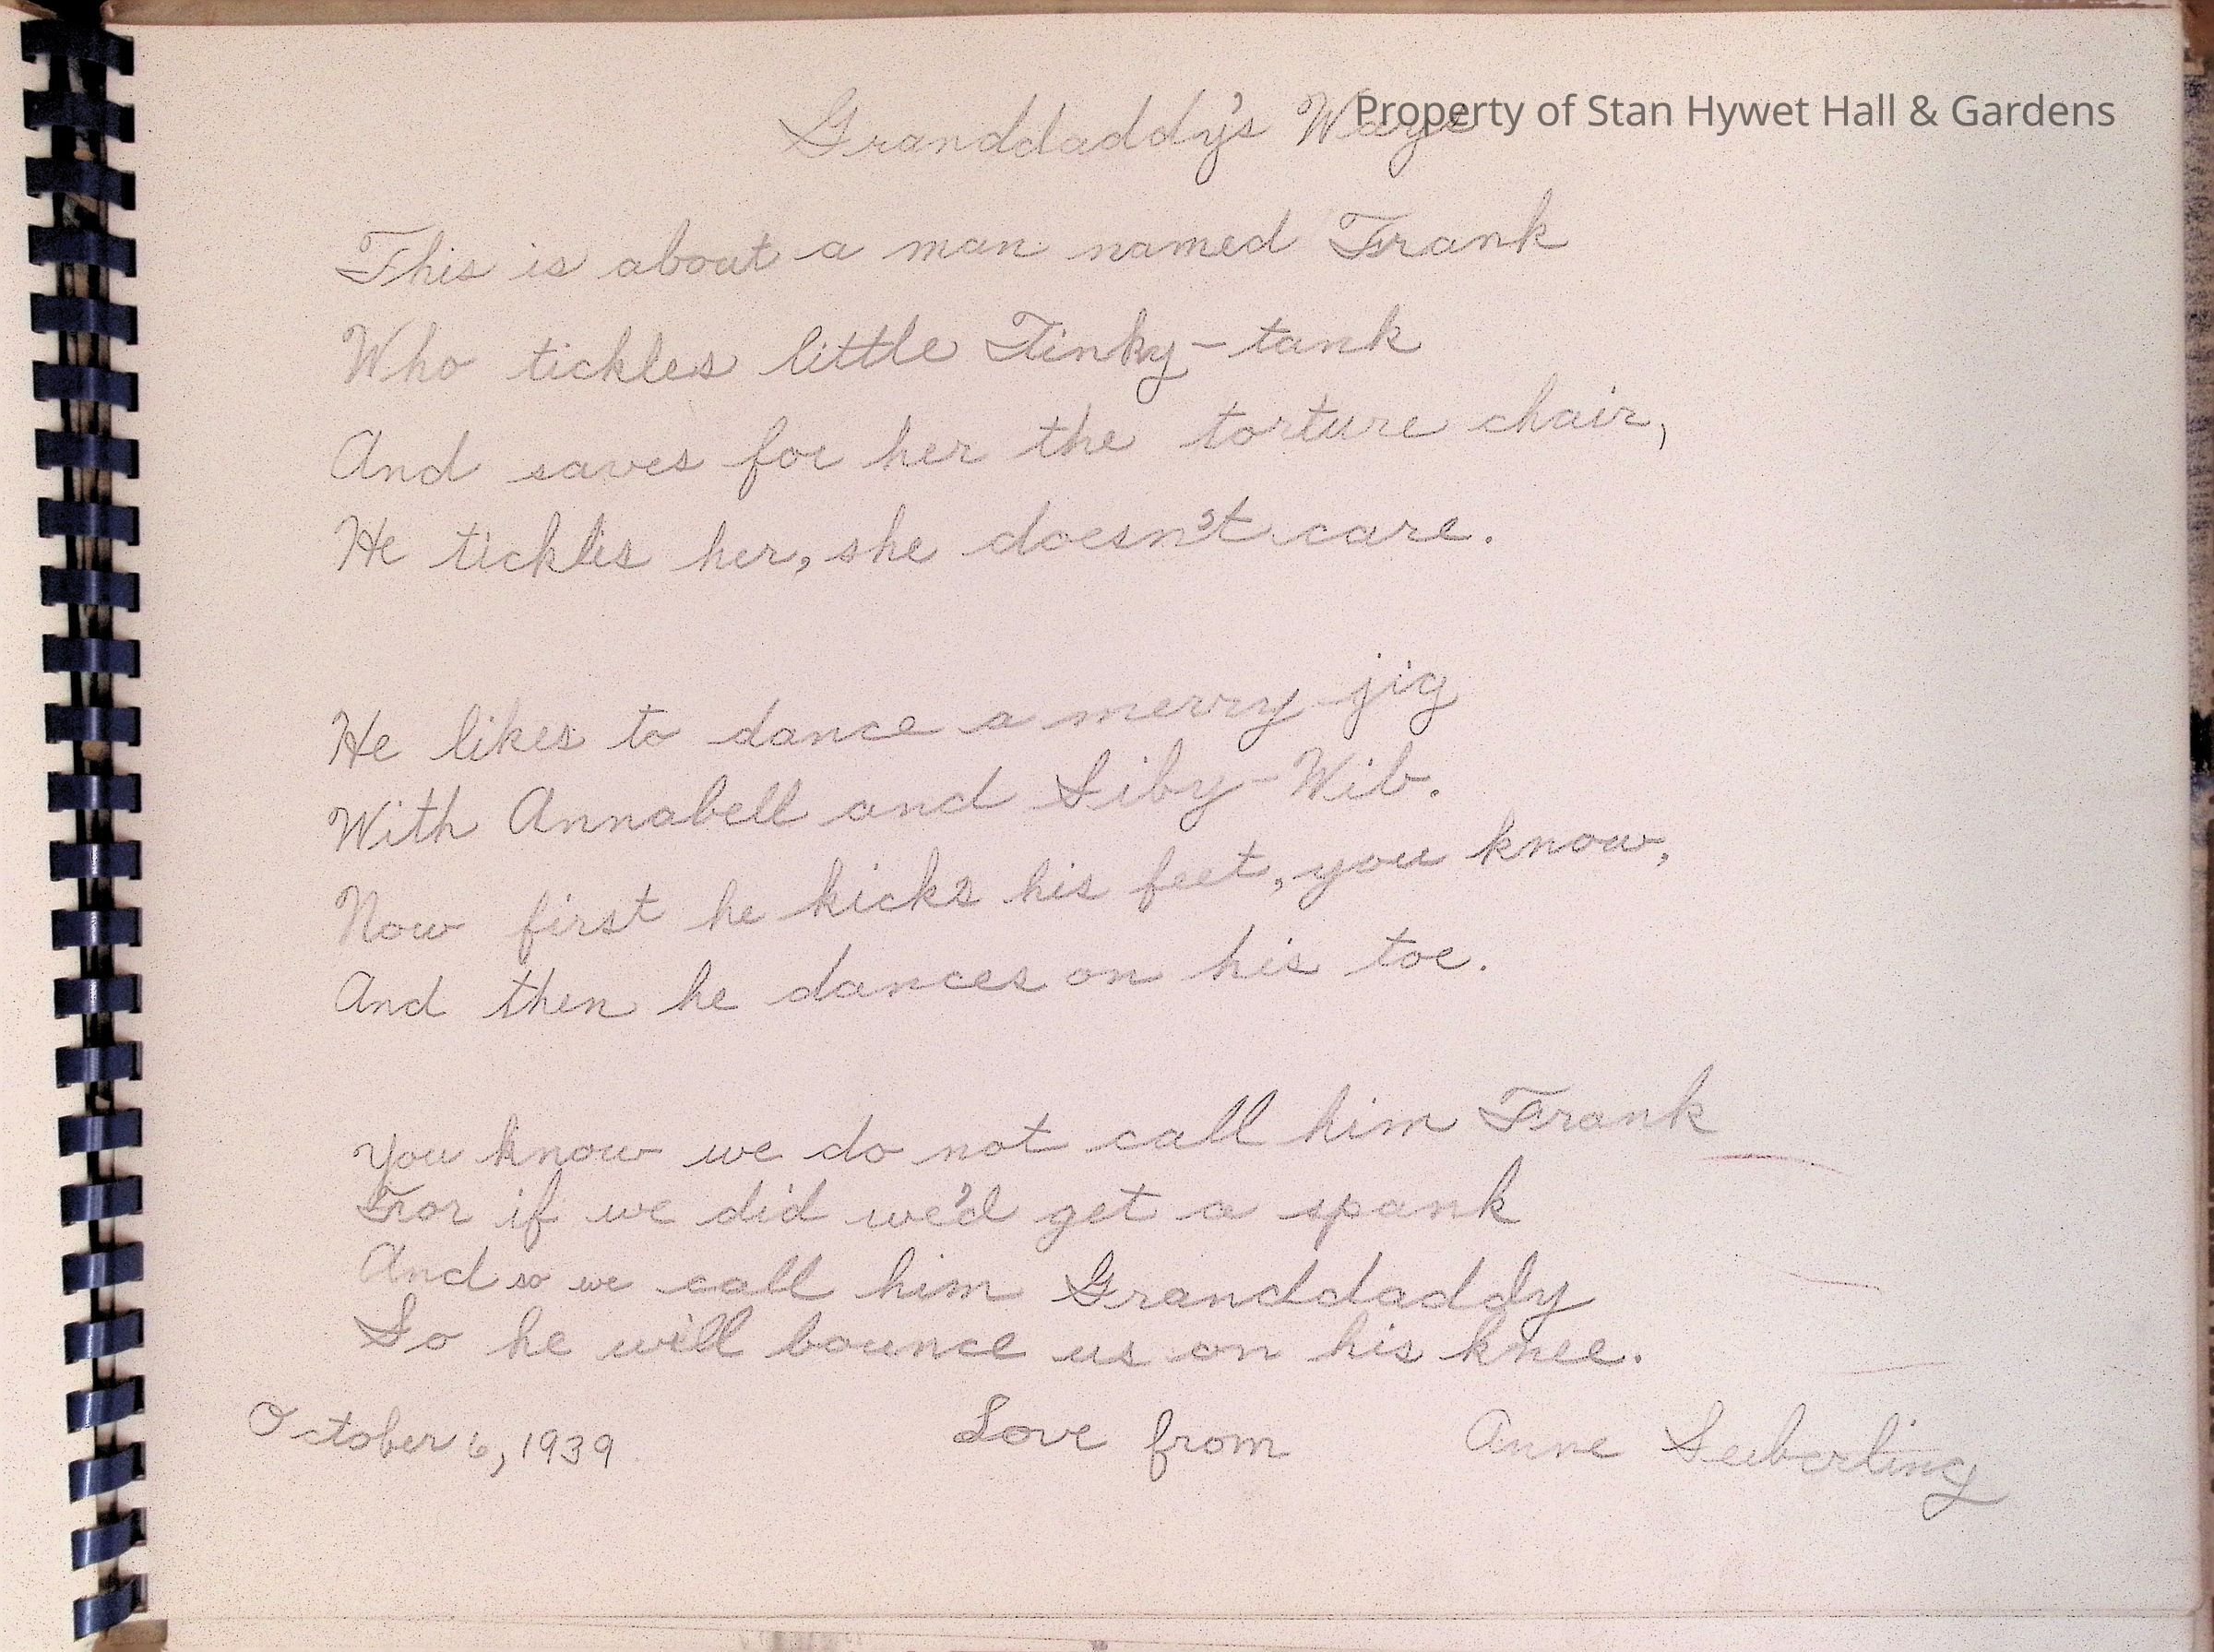 Granddaddy's Ways
Property of Stan Hywet Hall & Gardens
This is about a man named Frank
Who tickles little Tinky-tank
And saves for her the torture chair,
He tickles her, she doesn't care.
He likes to dance a merry jig
With Annabell and Siby-Wib.
Now first he kicks his feet, you know,
And then he dances on his toe.
You know we do not call him Frank
For if we did we'd get a spank
And so we call him Granddaddy
So he will bounce us on his knee.
October 6, 1939 Love from Anne Seiberling